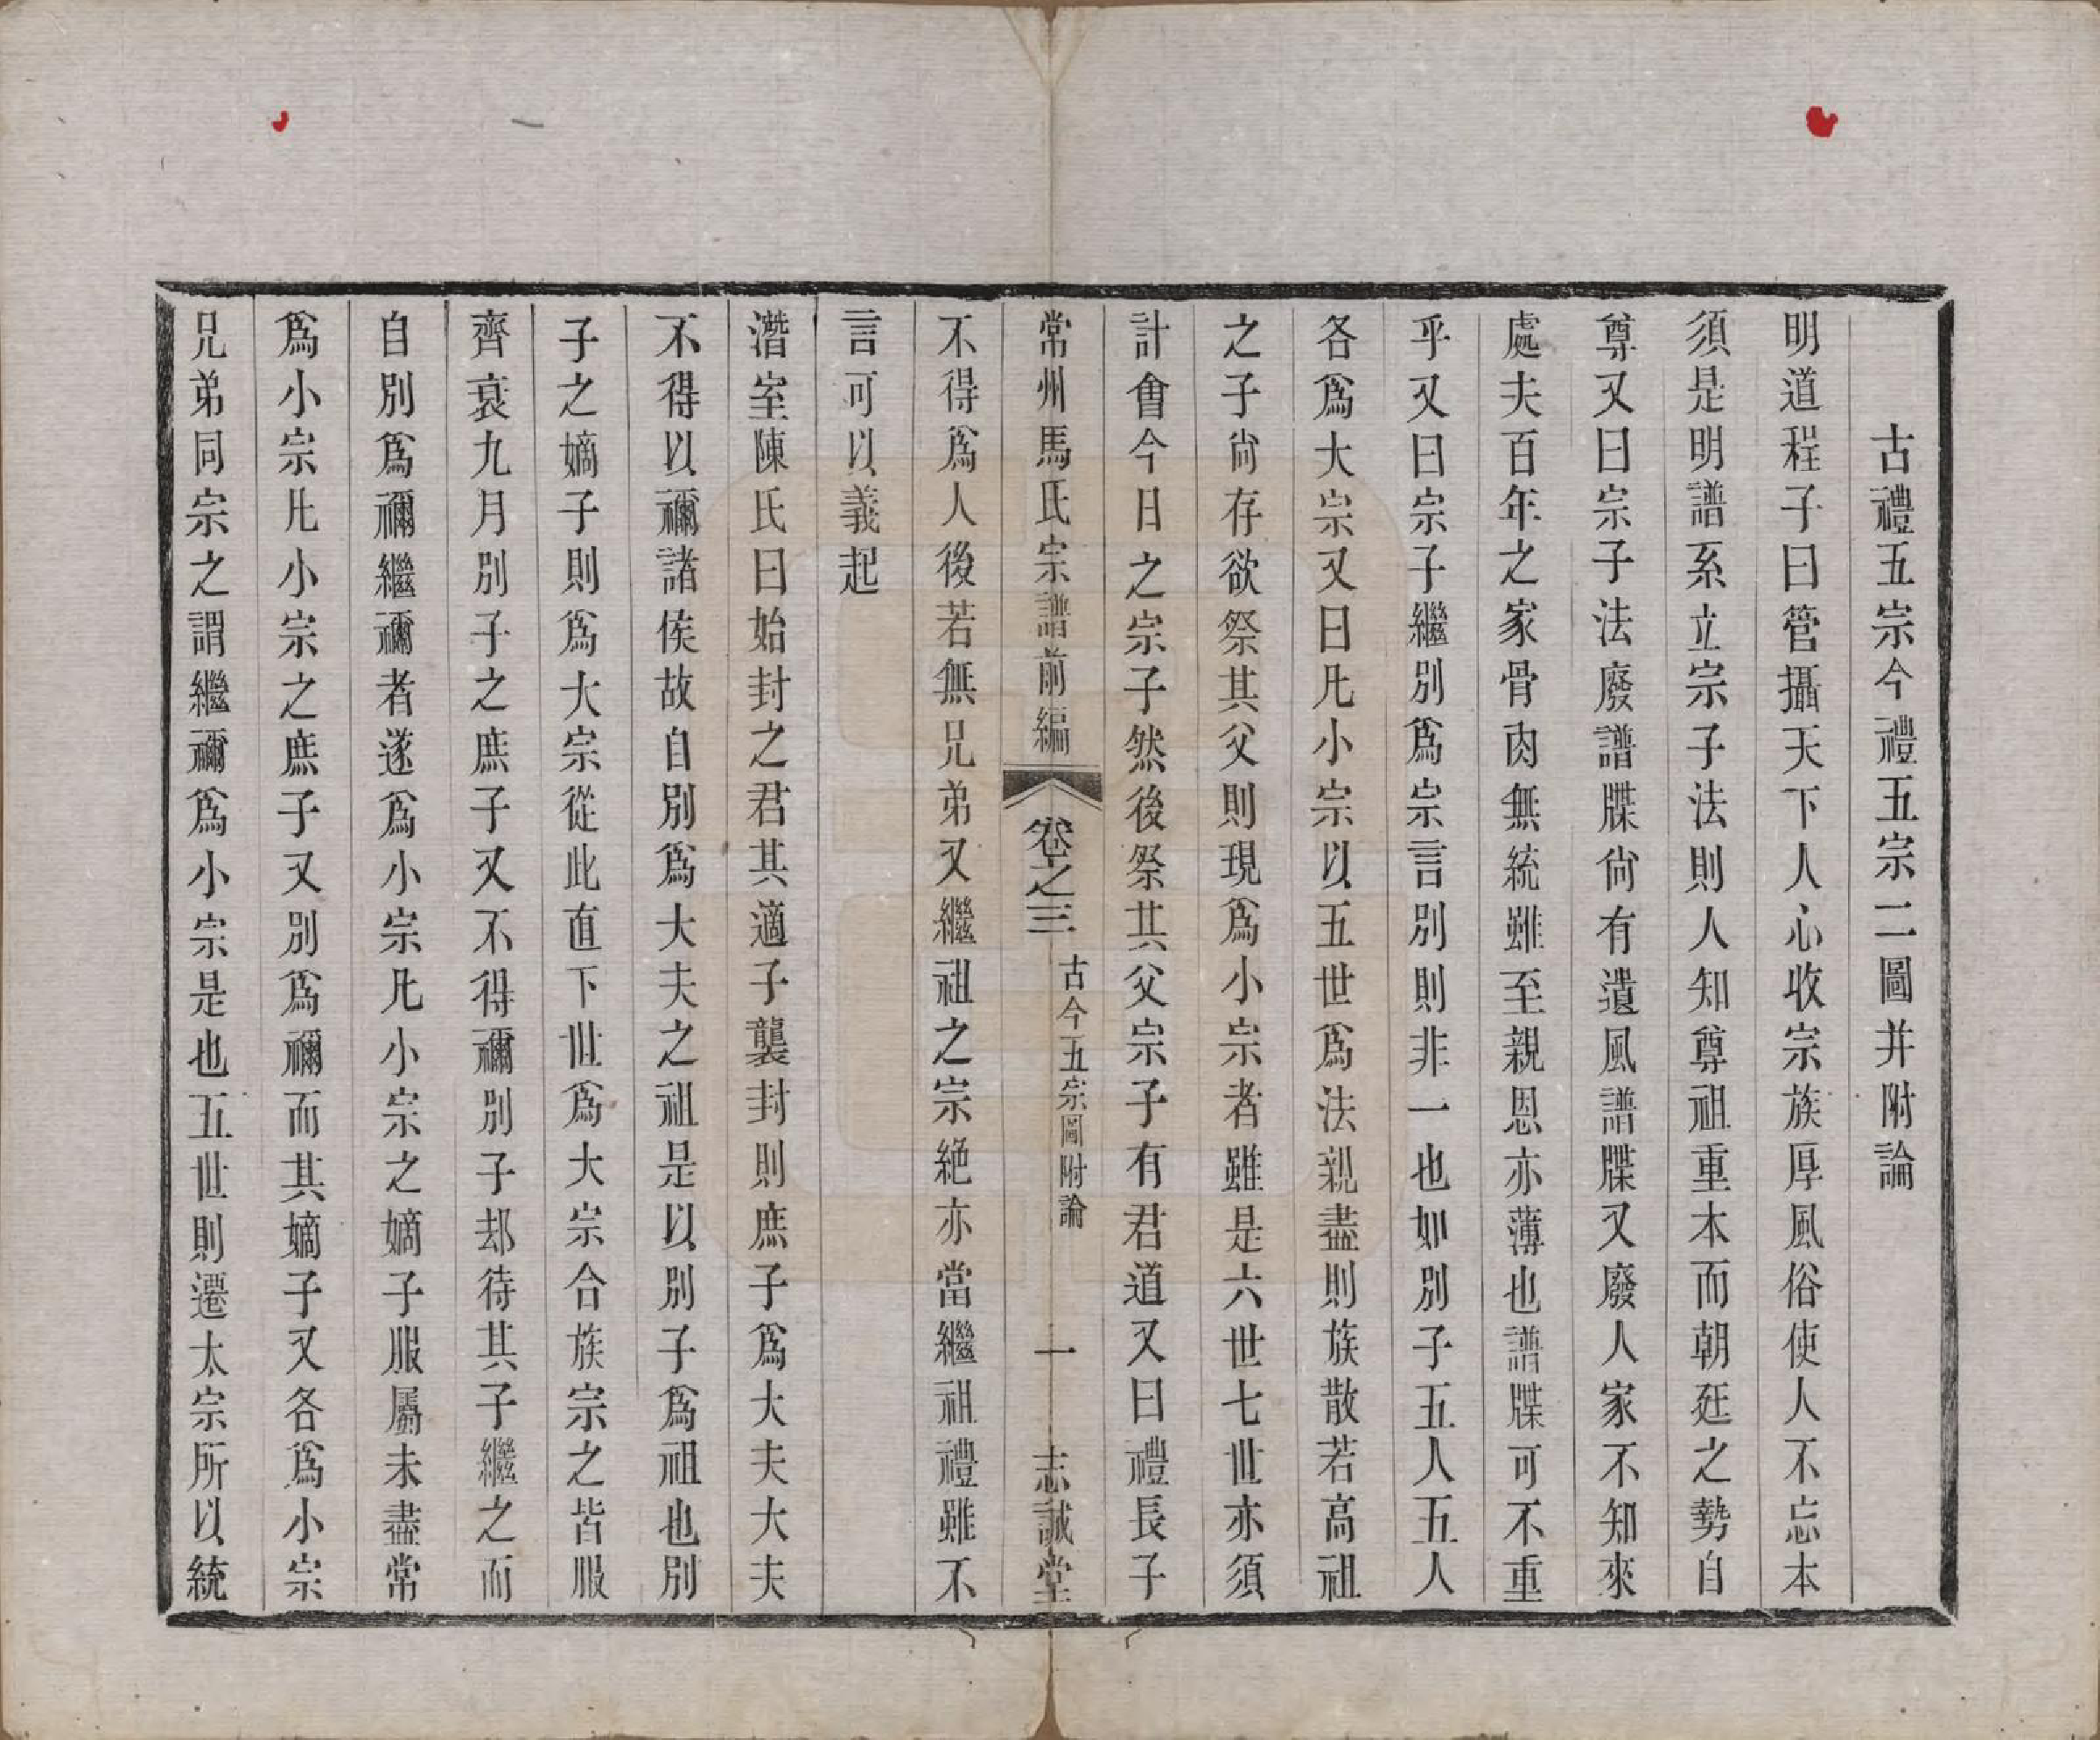 古禮五宗今禮五宗二圖并附論
明道程子曰管攝天下人心收宗族厚風俗使人不忘本
須是明譜系立宗子法則人知尊祖重本而朝廷之勢自
尊又曰宗子法廢譜牒尙有遺風譜牒又廢人家不知來
處夫百年之家骨肉無統雖至親恩亦薄也譜牒可不重
乎又曰宗子繼別爲宗言別則非一也如別子五人五人
各爲大宗又曰凡小宗以五世爲法親盡則族散若高祖
之子尙存欲祭其父則現爲小宗者雖是六世七世亦須
計會今日之宗子然後祭其父宗子有君道又曰禮長子
常州馬氏宗譜前編 卷之三 古今五宗圖附論 一 志誠堂
不得爲人後若無兄弟又繼祖之宗絶亦當繼祖禮雖不
言可以義起
潛室陳氏曰始封之君其適子襲封則庶子爲大夫大夫
不得以禰諸侯故自別爲大夫之祖是以別子爲祖也別
子之嫡子則爲大宗從此直下世爲大宗合族宗之皆服
齊衰九月別子之庶子又不得禰別子却待其子繼之而
自別爲禰繼禰者遂爲小宗凡小宗之嫡子服屬未盡常
爲小宗凡小宗之庶子又別爲禰而其嫡子又各爲小宗
兄弟同宗之謂繼禰爲小宗是也五世則遷太宗所以統